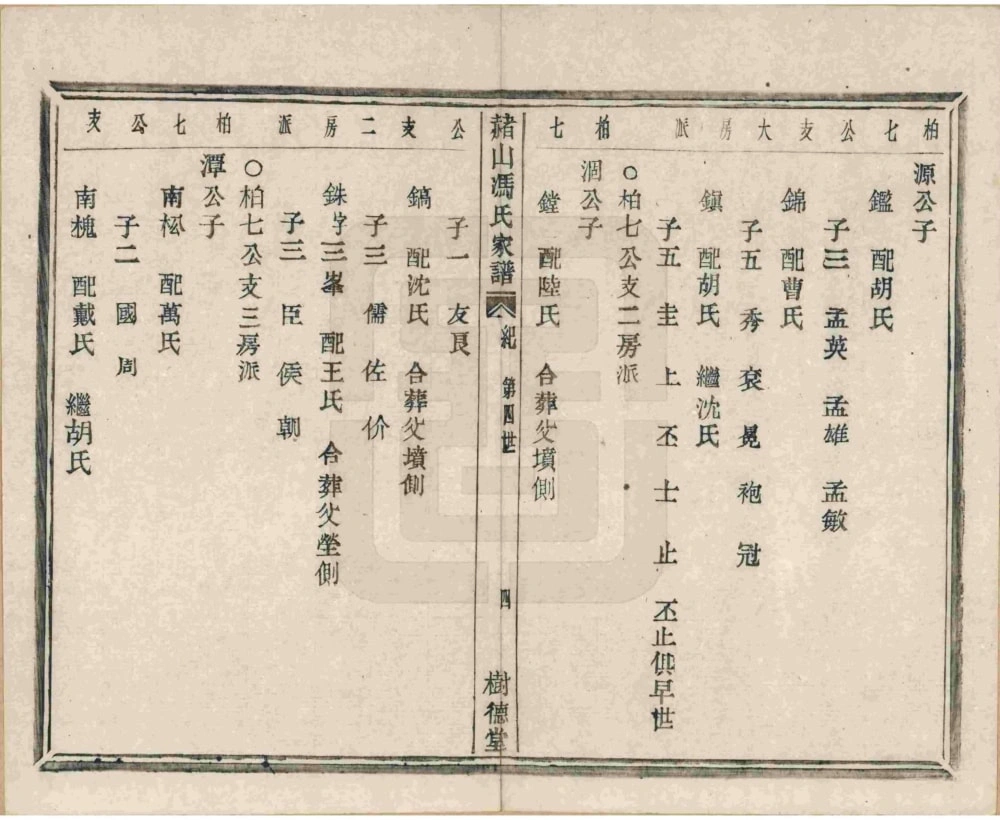 柏七公支大房派
源公子
鑑　配胡氏
子三　孟英　孟雄　孟敏
錦　配曹氏
子五　秀　袞　冕　袍　冠
鎭　配胡氏　繼沈氏
子五　圭　上　丕　士　止　丕止俱早世
○柏七公支二房派
柏七
潤公子
鏜　配陸氏　合葬父墳側
赭山馮氏家譜　紀　第四世　四　樹德堂
公支二房派
子一　友良
鎬　配沈氏　合葬父墳側
子三　儒　佐　价
銖字三峯　配王氏　合葬父塋側
子三　臣　侯　朝
○柏七公支三房派
柏七公支
潭公子
南松　配萬氏
子二　國　周
南槐　配戴氏　繼胡氏